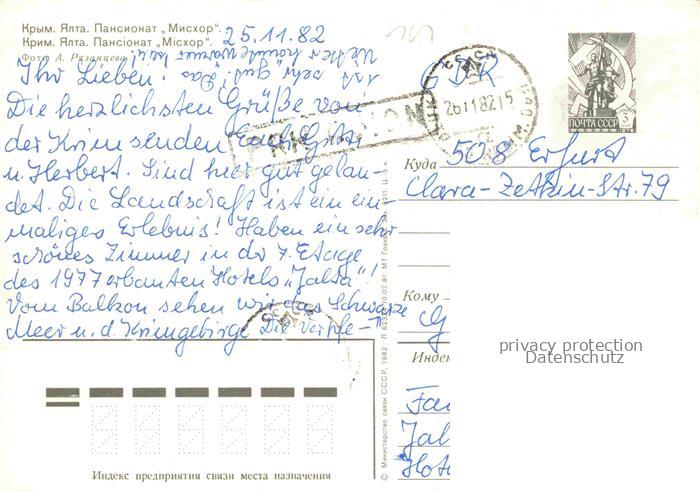 Крым. Ялта. Пансионат „Мисхор".
Крим. Ялта. Пансіонат „Місхор".
Фото А. Рязанцева
25.11.82
Ihr Lieben!
Die herzlichsten Grüße von
der Krim senden Euch Gitti
u. Herbert. Sind hier gut gelan-
det. Die Landschaft ist ein ein-
maliges Erlebnis! Haben ein sehr
schönes Zimmer in der 7. Etage
des 1977 erbauten Hotels „Jalta"!
Vom Balkon sehen wir das Schwarze
Meer u. d. Krimgebirge. Die Verpfle-
ist sehr gut! Das
Wetter
GDR
26 11 82 15
ПОЧТА СССР
3
1976
Куда 508 Erfurt
Clara-Zetkin-Str. 79
Кому
Индек
Jal
Hote
privacy protection
Datenschutz
© Министерство связи СССР, 1982
Индекс предприятия связи места назначения